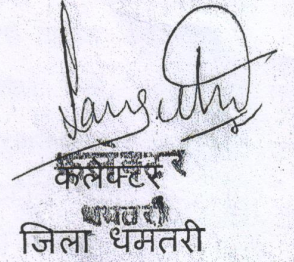 कलेक्टर
धमतरी
जिला धमतरी